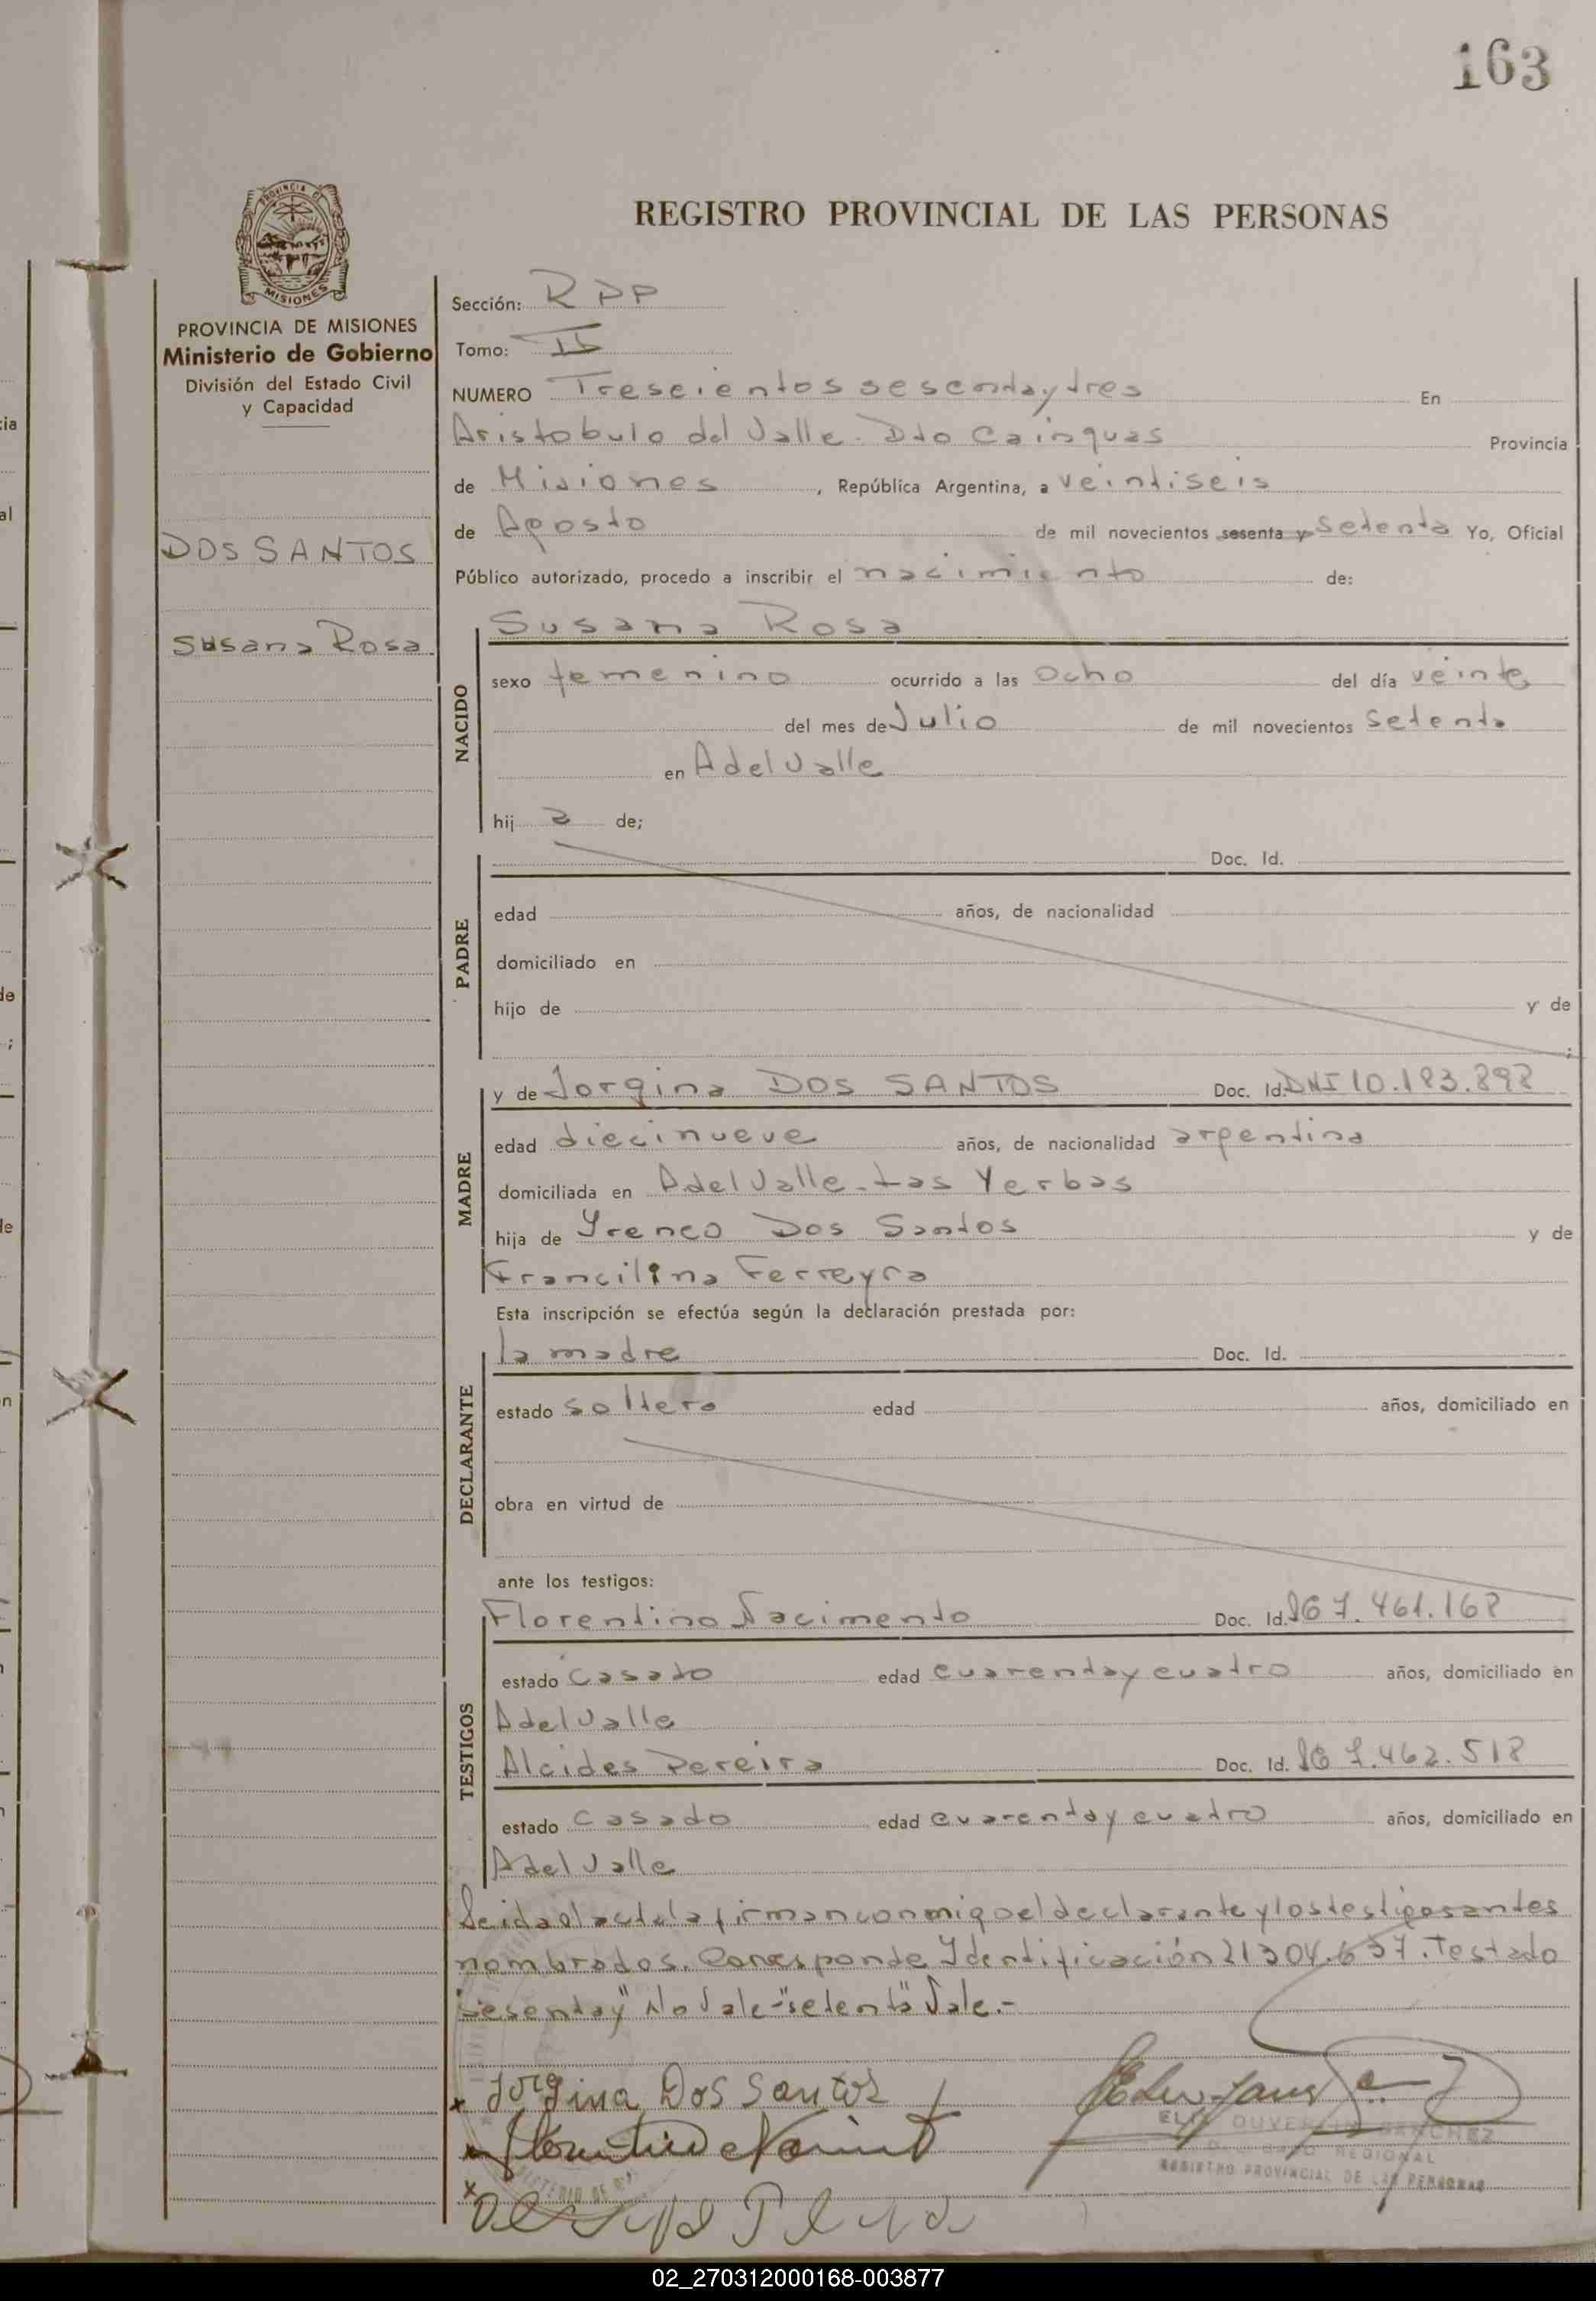 163
REGISTRO PROVINCIAL DE LAS PERSONAS
PROVINCIA DE
MISIONES
PROVINCIA DE MISIONES
Ministerio de Gobierno
División del Estado Civil
y Capacidad
DOS SANTOS
Susana Rosa
Sección: RPP
Tomo: II
NUMERO Trescientos sesentaytres En
Aristobulo del Valle. Dto Cainguas Provincia
de Misiones, República Argentina, a veintiseis
de Agosto de mil novecientos sesenta y setenta Yo, Oficial
Público autorizado, procedo a inscribir el nacimiento de:
NACIDO
Susana Rosa
sexo femenino ocurrido a las ocho del día veinte
del mes de Julio de mil novecientos setenta
en A del Valle
hij a de;
PADRE
Doc. Id.
edad años, de nacionalidad
domiciliado en
hijo de y de
MADRE
y de Jorgina DOS SANTOS Doc. Id. DNI 10.183.898
edad diecinueve años, de nacionalidad argentina
domiciliada en A del Valle - Las Yerbas
hija de Yreneo Dos Santos y de
Francilina Ferreyra
Esta inscripción se efectúa según la declaración prestada por:
DECLARANTE
la madre Doc. Id.
estado soltera edad años, domiciliado en
obra en virtud de
ante los testigos:
TESTIGOS
Florentino Nacimento Doc. Id. 7.461.168
estado casado edad cuarentaycuatro años, domiciliado en
A del Valle
Alcides Pereira Doc. Id. 7.462.518
estado casado edad cuarentaycuatro años, domiciliado en
A del Valle
Leida el acta la firman conmigo el declarante y los testigos antes
nombrados. Corresponde Identificación 21304.637. Testado
"sesentay" No Vale-"setenta" Vale.-
Jorgina Dos Santos
SANCHEZ
REGIONAL
REGISTRO PROVINCIAL DE LAS PERSONAS
02_270312000168-003877